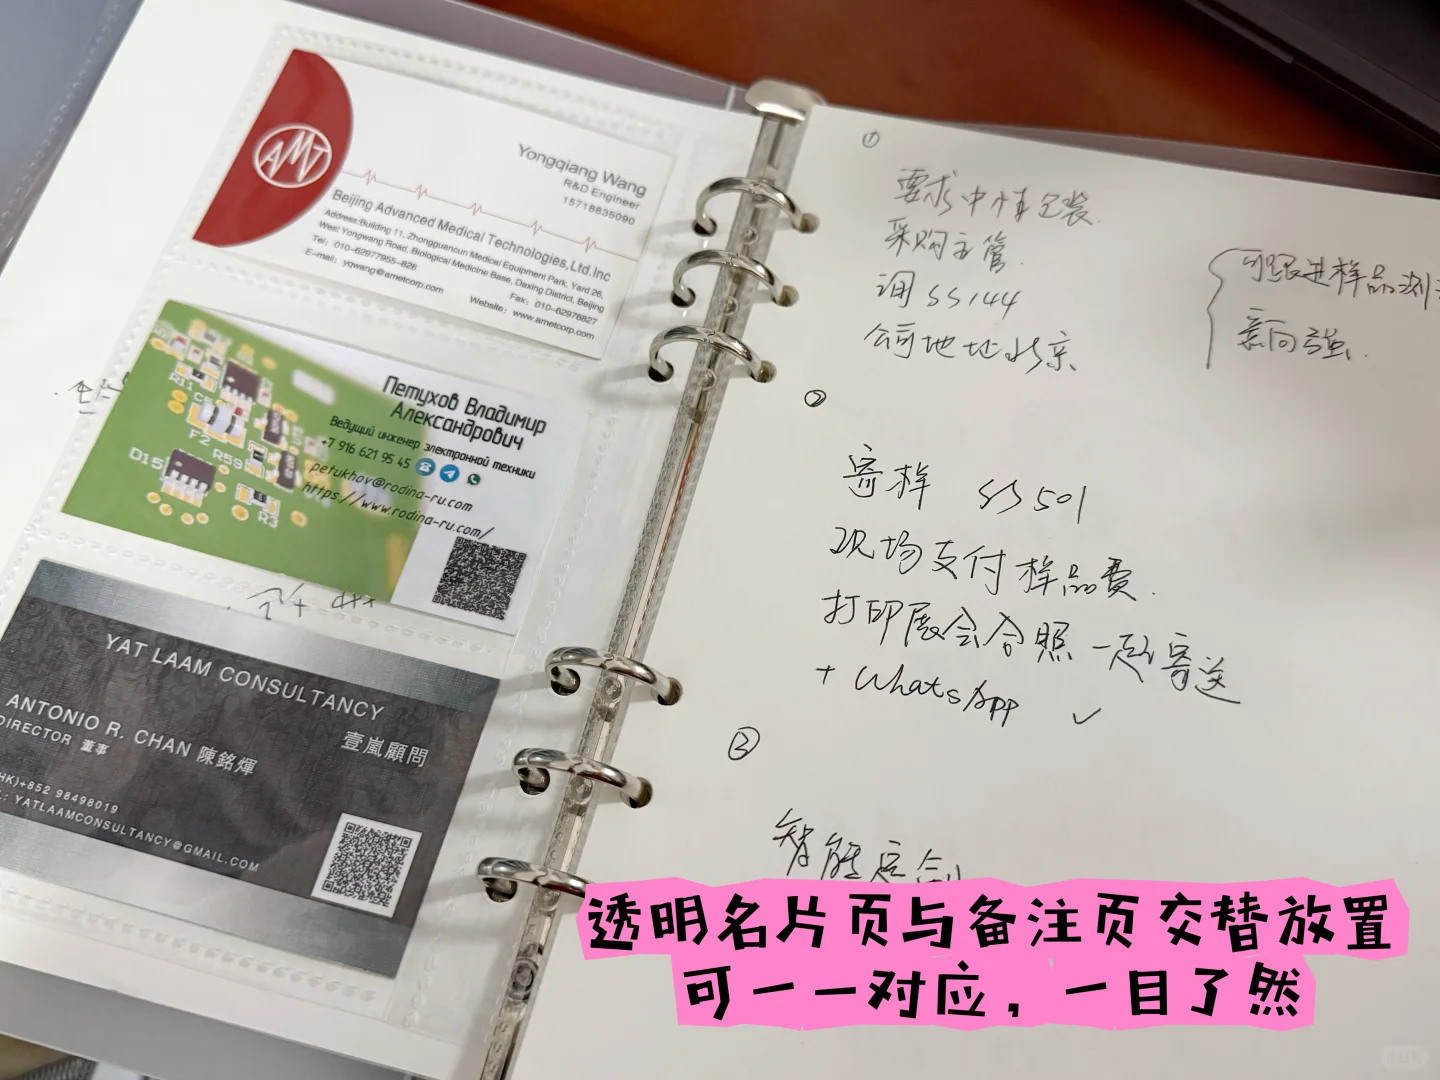 AMT
Yongqiang Wang
R&D Engineer
15718835090
Beijing Advanced Medical Technologies,Ltd.Inc
Address:Building 11, Zhongguancun Medical Equipment Park, Yard 26,
West Yongwang Road, Biological Medicine Base, Daxing District, Beijing
Tel: 010-62977955-826
Fax: 010-62976827
E-mail: yqwang@ametcorp.com
Website: www.ametcorp.com
D1
R11
C5
F2
R59
D15
R3
Петухов Владимир
Александрович
Ведущий инженер электронной техники
+7 916 621 95 45
petukhov@rodina-ru.com
https://www.rodina-ru.com/
YAT LAAM CONSULTANCY
壹嵐顧問
ANTONIO R. CHAN 陳銘煇
DIRECTOR 董事
HK)+852 98498019
L: YATLAAMCONSULTANCY@GMAIL.COM
①
要求中性包装.
采购主管.
询SS144
公司地址北京
可跟进样品测
意向强.
②
寄样 SS501
现场支付样品费.
打印展会合照一起寄送
+ WhatsApp ✓
③
智能定制
透明名片页与备注页交替放置
可一一对应，一目了然